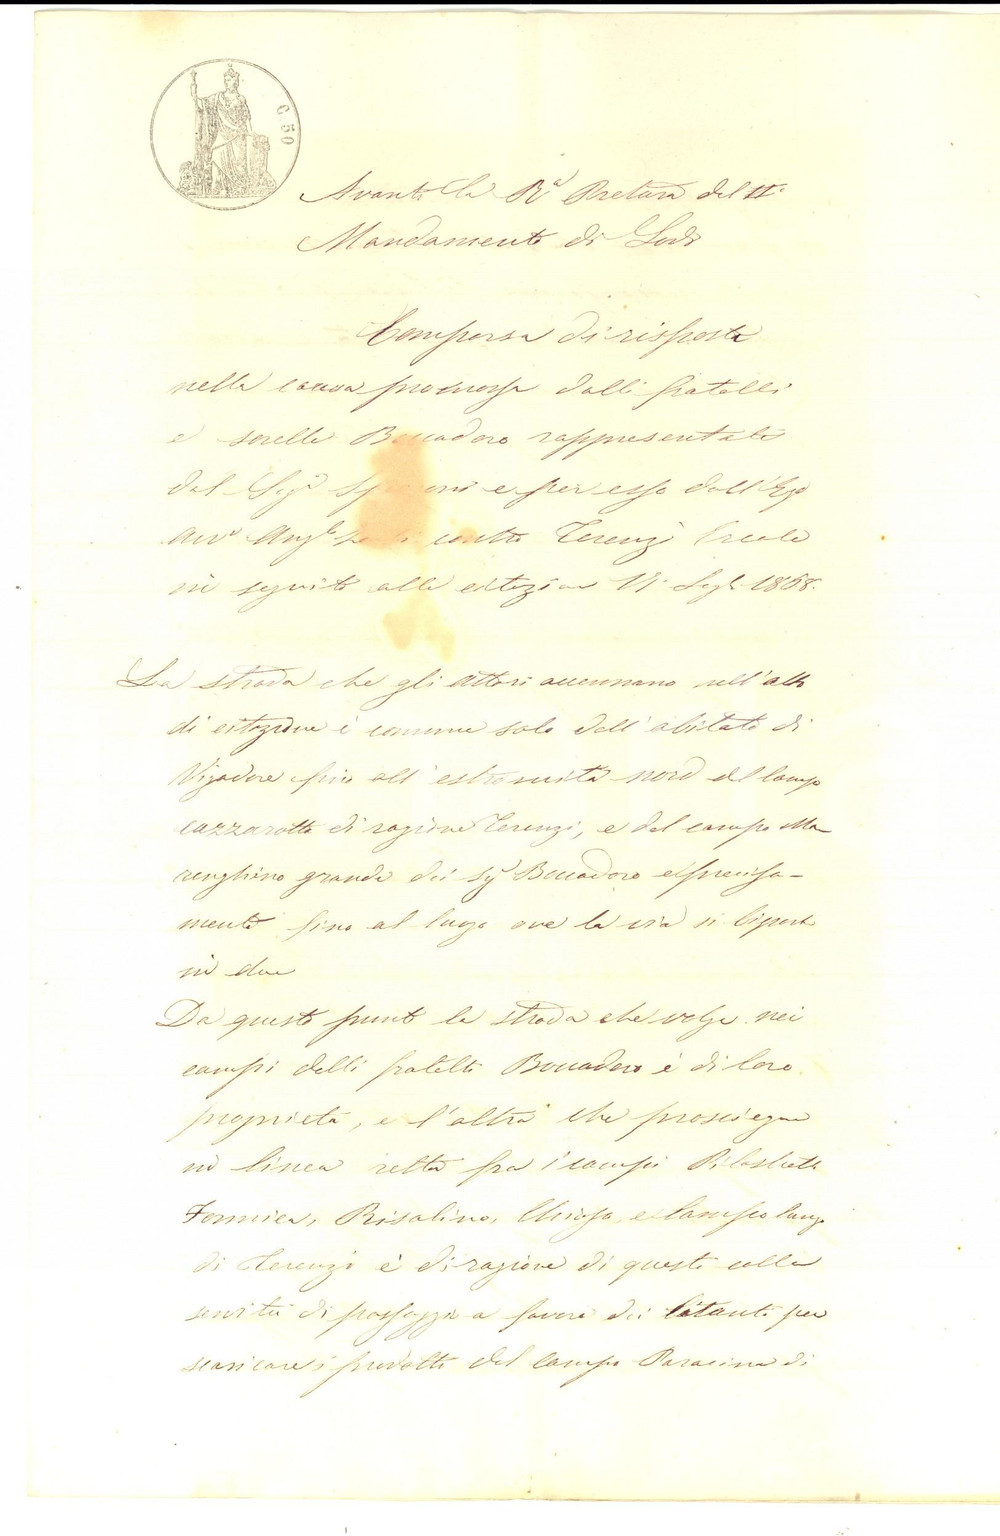 C. 50
Avanti la Rª Pretura del IIº
Mandamento di Lodi
Comparsa di risposta
nella causa promossa dalli fratelli
e sorelle Boccadoro rappresentati
dal Sigr e per esso dall'Egº
Avvº Angº contro Terenzi Ercole
in seguito alla citazione 11 Lugº 1868.
La strada che gli attori accennano nell'atto
di citazione è comune solo dall'abitato di
Vigadore fino all'estremità nord del campo
Cazzarotto di ragione Terenzi, e del campo Ma-
renghino grande dei Sigr Boccadoro e precisa-
mente fino al luogo ove la via si biparte
in due
Da questo punto la strada che volge nei
campi delli fratelli Boccadoro è di loro
proprietà, e l'altra che prosiegue
in linea retta fra i campi
Fornica, Risolino, Chiosa, e Campo lungo
di Terenzi è di ragione di questi colla
servitù di passaggio a favore dei citanti per
scaricare i prodotti del campo Paracina di